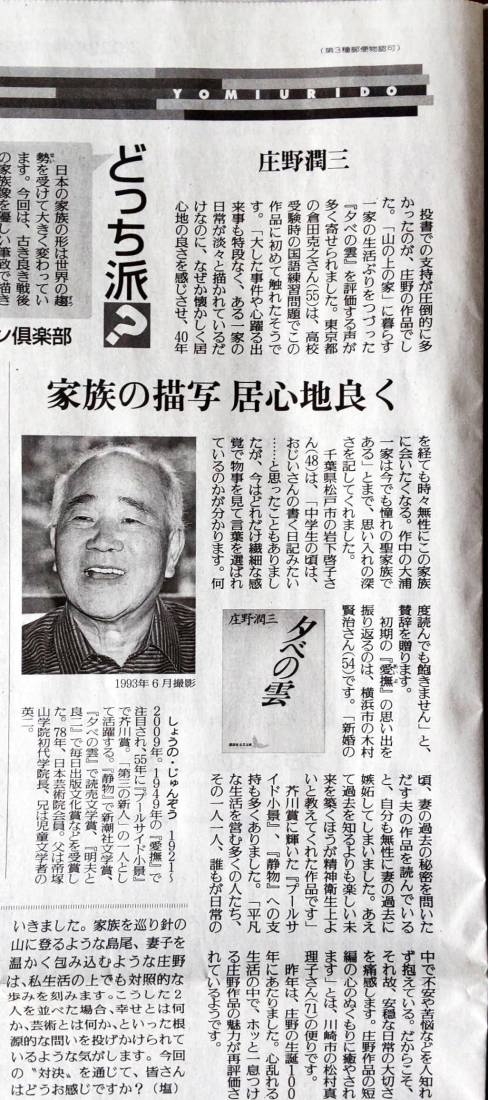 (第3種郵便物認可)
YOMIURIDO
どっち派?
日本の家族の形は世界の趨
勢を受けて大きく変わってい
ます。今回は、古き良き戦後
の家族像を優しい筆致で描き
ン倶楽部
庄野潤三
投書での支持が圧倒的に多
かったのが、庄野の作品でし
た。「山の上の家」に暮らす
一家の生活ぶりをつづった
『夕べの雲』を評価する声が
多く寄せられました。東京都
の倉田克之さん(55)は、高校
受験時の国語練習問題でこの
作品に初めて触れたそうで
す。「大した事件や心躍る出
来事も特段なく、ある一家の
日常が淡々と描かれているだ
けなのに、なぜか懐かしく居
心地の良さを感じさせ、40年
家族の描写 居心地良く
を経ても時々無性にこの家族
に会いたくなる。作中の大浦
一家は今でも憧れの聖家族で
ある」とまで、思い入れの深
さを記してくれました。
千葉県松戸市の岩下啓子さ
ん(48)は、「中学生の頃は、
おじいさんの書く日記みたい
……と思ったこともありまし
たが、今はどれだけ繊細な感
覚で物事を見て言葉を選ばれ
ているのかが分かります。何
度読んでも飽きません」と、
賛辞を贈ります。
初期の『愛撫』の思い出を
振り返るのは、横浜市の木村
賢治さん(54)です。「新婚の
庄野潤三
夕べの雲
1993年6月撮影
しょうの・じゅんぞう 1921〜
2009年。1949年の『愛撫』で
注目され、55年に『プールサイド小景』
で芥川賞。「第三の新人」の一人とし
て活躍する。『静物』で新潮社文学賞、
『夕べの雲』で読売文学賞、『明夫と
良二』で毎日出版文化賞などを受賞し
た。78年、日本芸術院会員。父は帝塚
山学院初代学院長、兄は児童文学者の
英二。
頃、妻の過去の秘密を問いた
だす夫の作品を読んでいる
と、自分も無性に妻の過去に
嫉妬してしまいました。あえ
て過去を知るよりも楽しい未
来を築くほうが精神衛生上よ
いと教えてくれた作品です」
芥川賞に輝いた『プールサ
イド小景』、『静物』への支
持も多くありました。「平凡
な生活を営む多くの人たち、
その一人一人、誰もが日常の
中で不安や苦悩などを人知れ
ず抱えている。だからこそ、
それ故、安穏な日常の大切さ
を痛感します。庄野作品の短
編の心のぬくもりに癒やされ
ます」とは、川崎市の松村真
理子さん(71)の便りです。
昨年は、庄野の生誕100
年にあたりました。心乱れる
生活の中で、ホッと一息つけ
る庄野作品の魅力が再評価さ
れているようです。
いきました。家族を巡り針の
山に登るような島尾、妻子を
温かく包み込むような庄野
は、私生活の上でも対照的な
歩みを刻みます。こうした2
人を並べた場合、幸せとは何
か、芸術とは何か、といった根
源的な問いを投げかけられて
いるような気がします。今回
の〝対決〟を通じて、皆さん
はどうお感じですか?(塩)